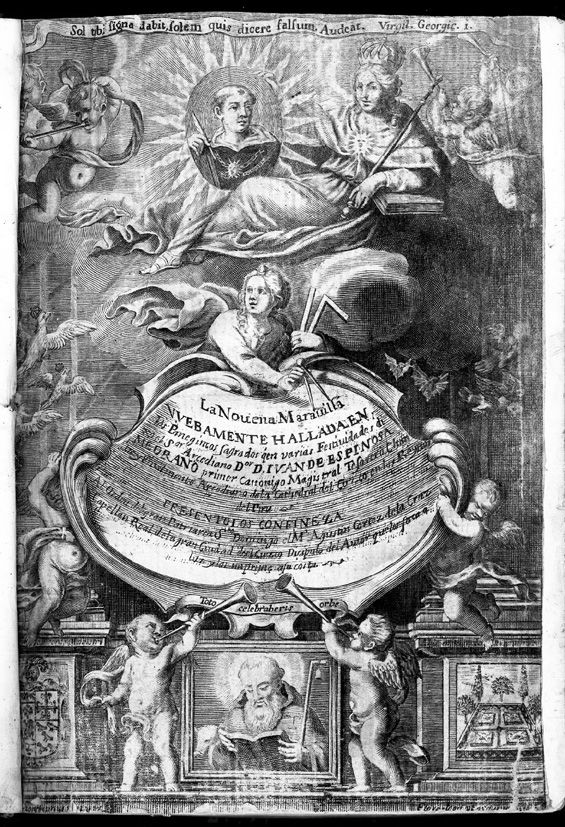 Sol ubi signa dabit, solem quis dicere falsum. Audeat. Virgil. Georgic. 1.
La Nouena Marauilla
NVEBAMENTE HALLADA EN
los Panegiricos sagrados q en varias Festividades di
el Sor Arcediano Dor D. IVAN DE ESPINOSA
MEDRANO primer Canonigo Magistral Tesorero Chan
Arcediano de la Cathedral del Cuzco en los Reynos
del Piru
PRESENTOLOS CONFINEZA
Sto Domingo el Mo Agustin Cortez de la Cruz
Capellan Real de la gran Ciudad del Cuzco Dicipulo del Autor que los saca a
luz y los imprime a su costa
Toto celebraberis orbe